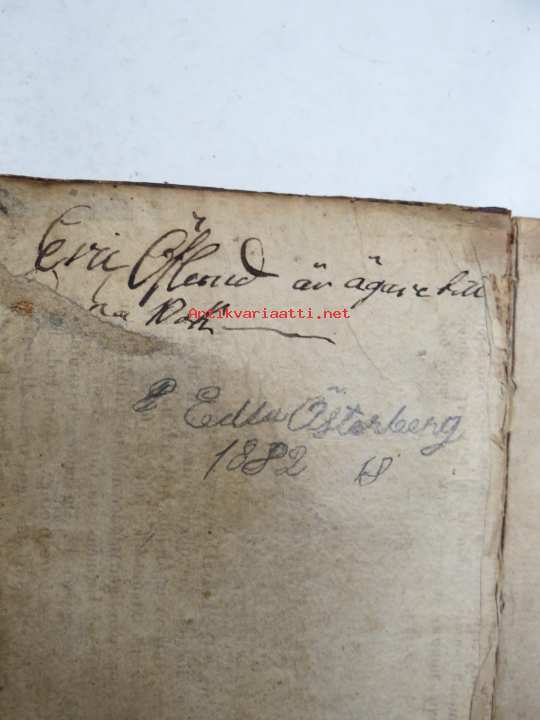 Eric Öflund är ägare till
na Bok
Antikvariaatti.net
E Edla Österberg
1882 18